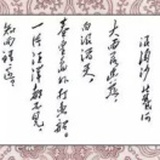 浪淘沙 北戴河
大雨落幽燕,
白浪滔天,
秦皇島外打魚船。
一片汪洋都不見,
知向誰邊